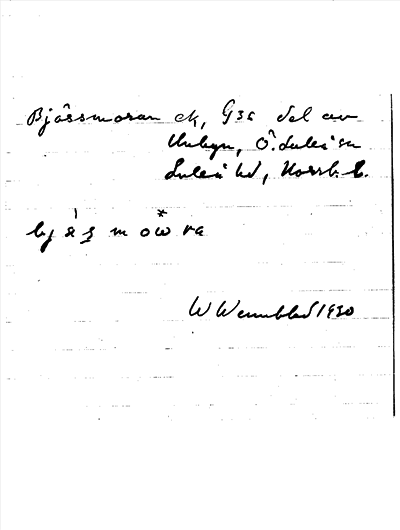 Bjässmoran ek, G36 del av
Unbyn, Ö. Luleå sn
Luleå hd, Norrb. l.
bj ä s m o ω ra
W Wennblad 1930